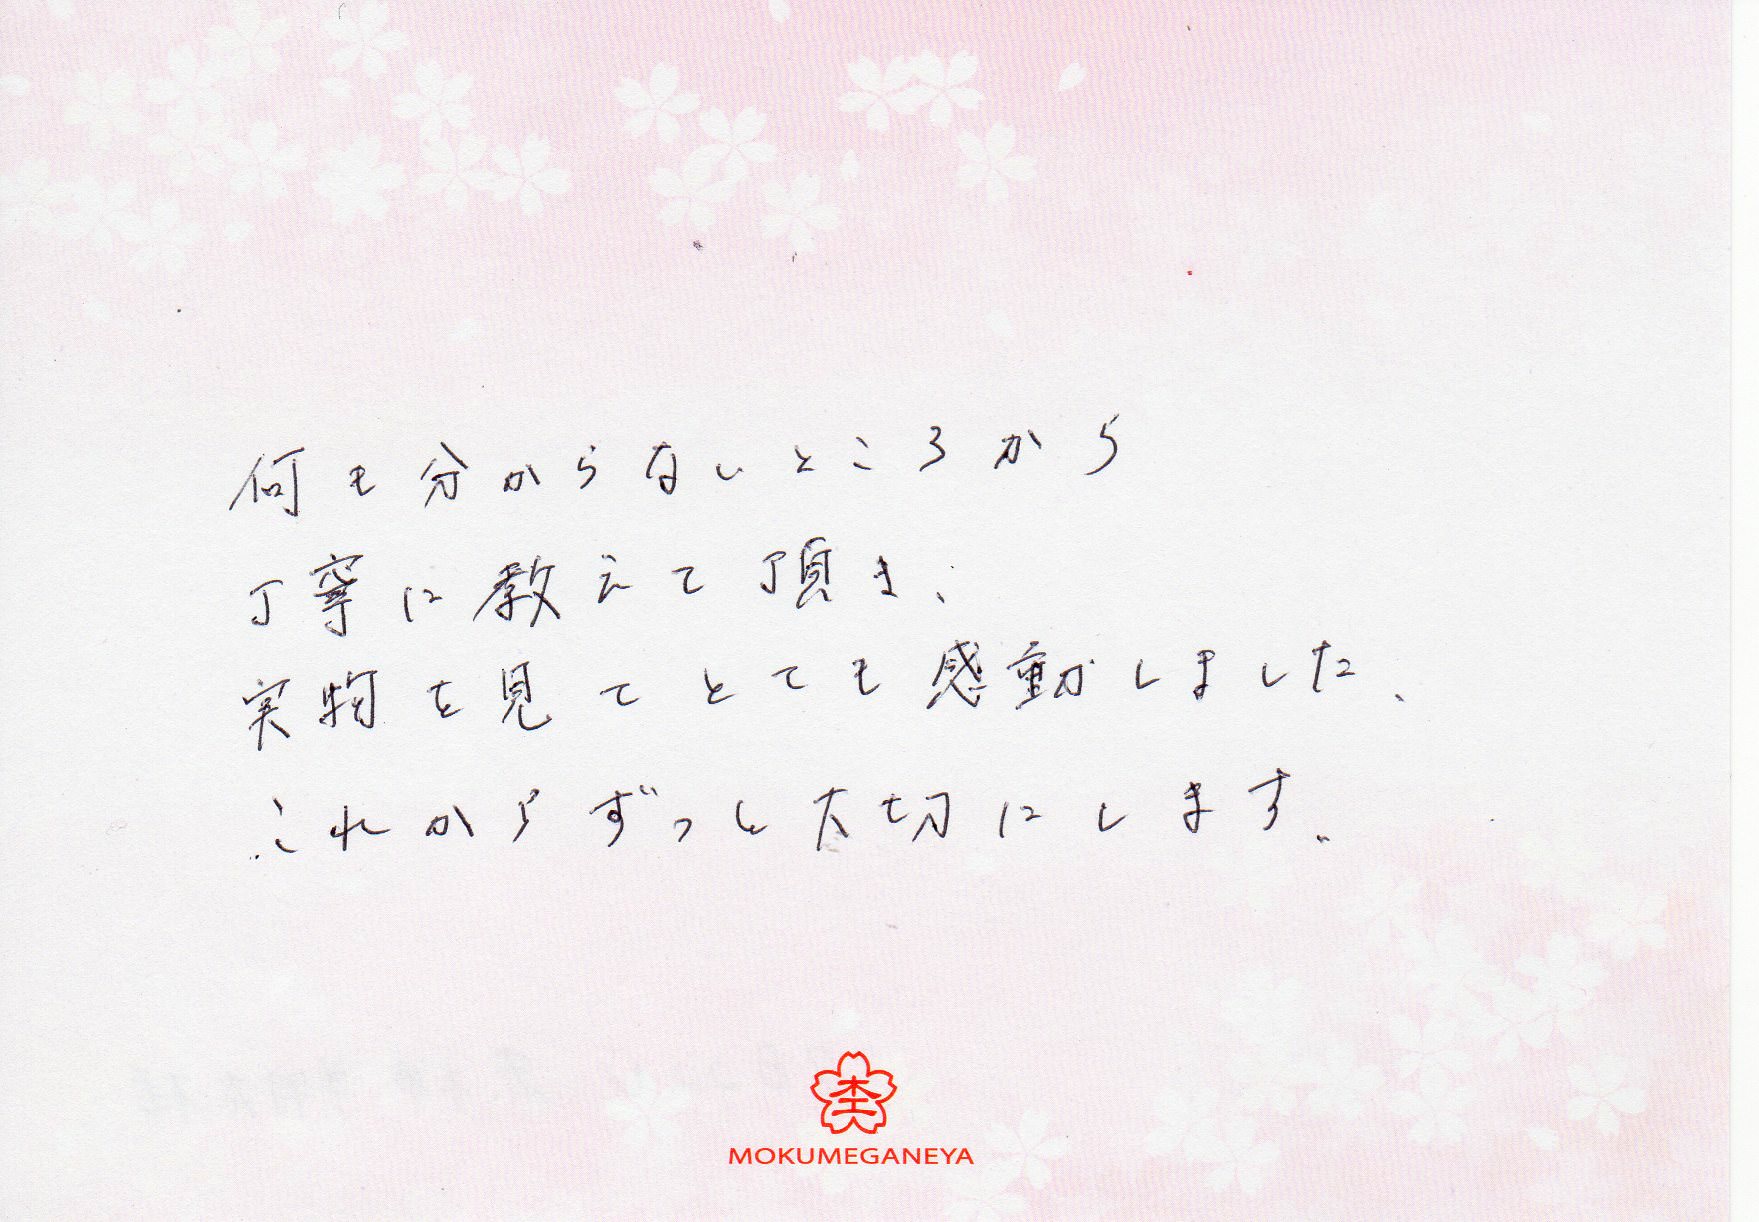 何も分からないところから
丁寧に教えて頂き、
実物を見てとても感動しました。
これからずっと大切にします。
杢
MOKUMEGANEYA